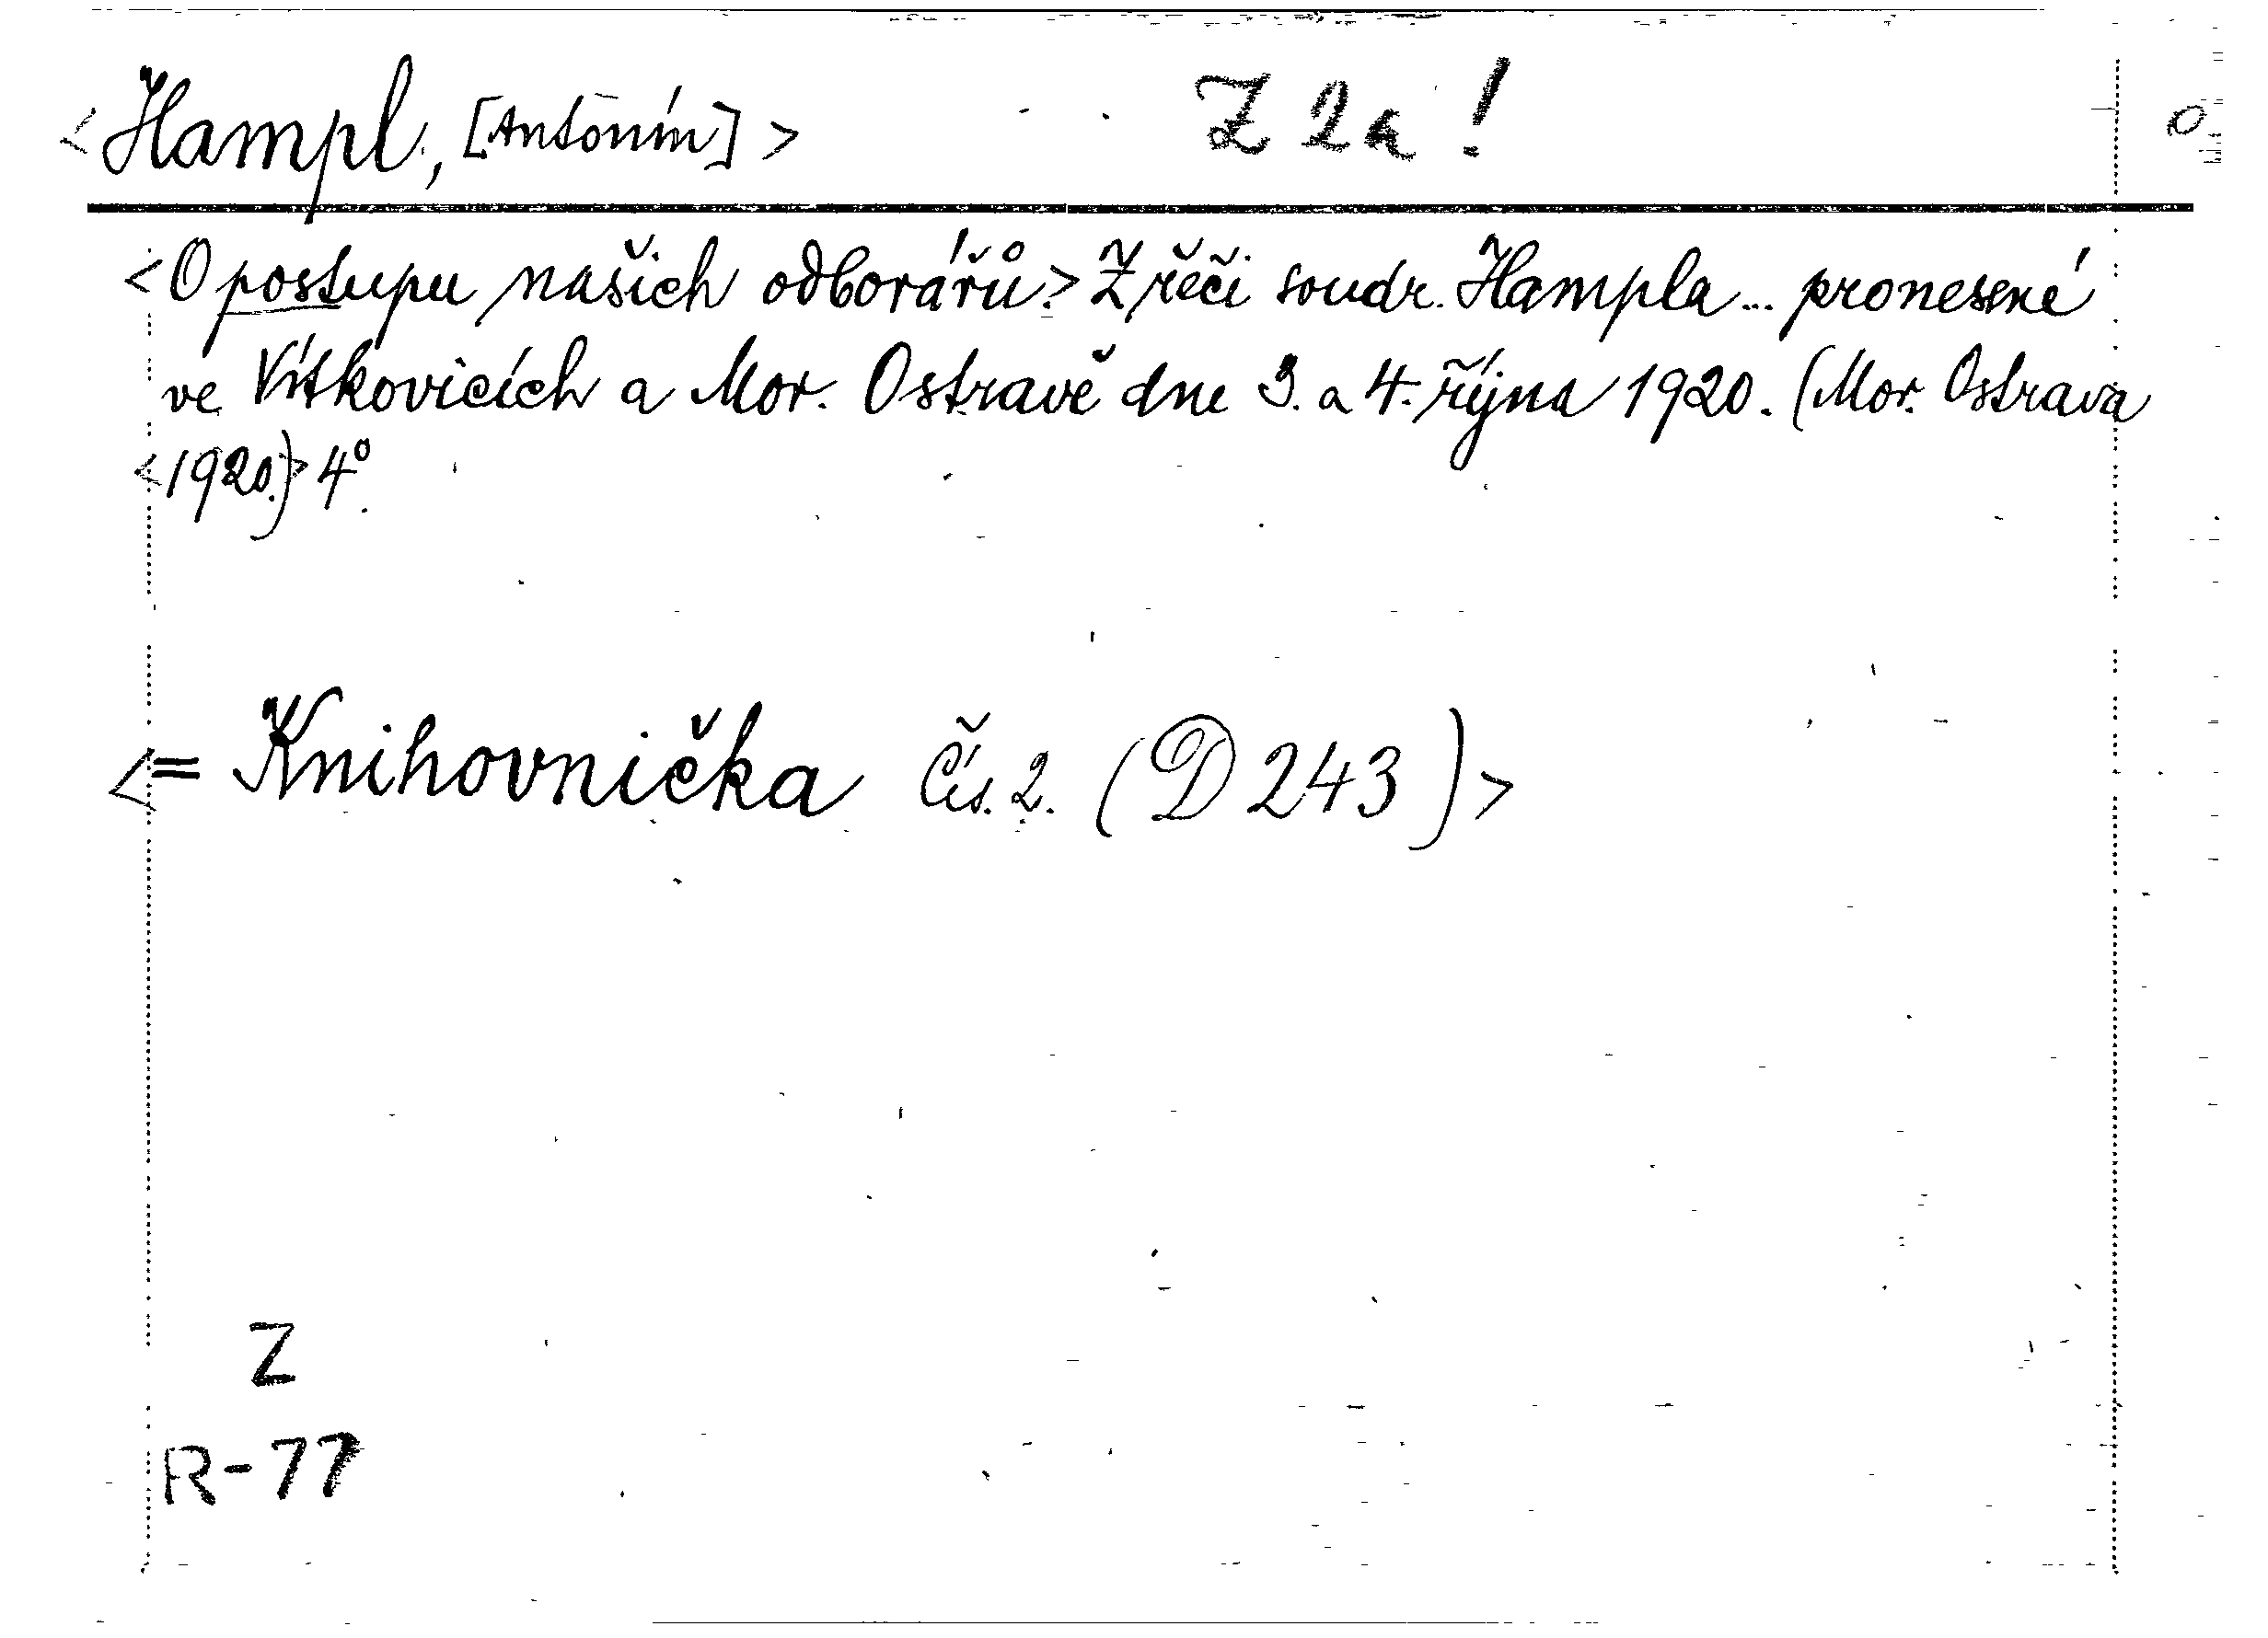 <Hampl, [Antonín]> Z 2a !
<O postupu našich odborářů.> Z řeči soudr. Hampla... pronesené
ve Vítkovicích a Mor. Ostravě dne 3. a 4. října 1920. (Mor. Ostrava
<1920.)> 4°.
<= Knihovnička Čís. 2. (D 243)>
Z
R-77